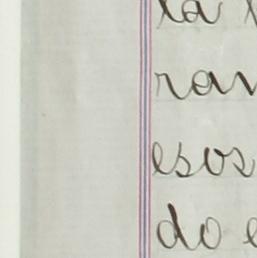 la
ran
esos
do e